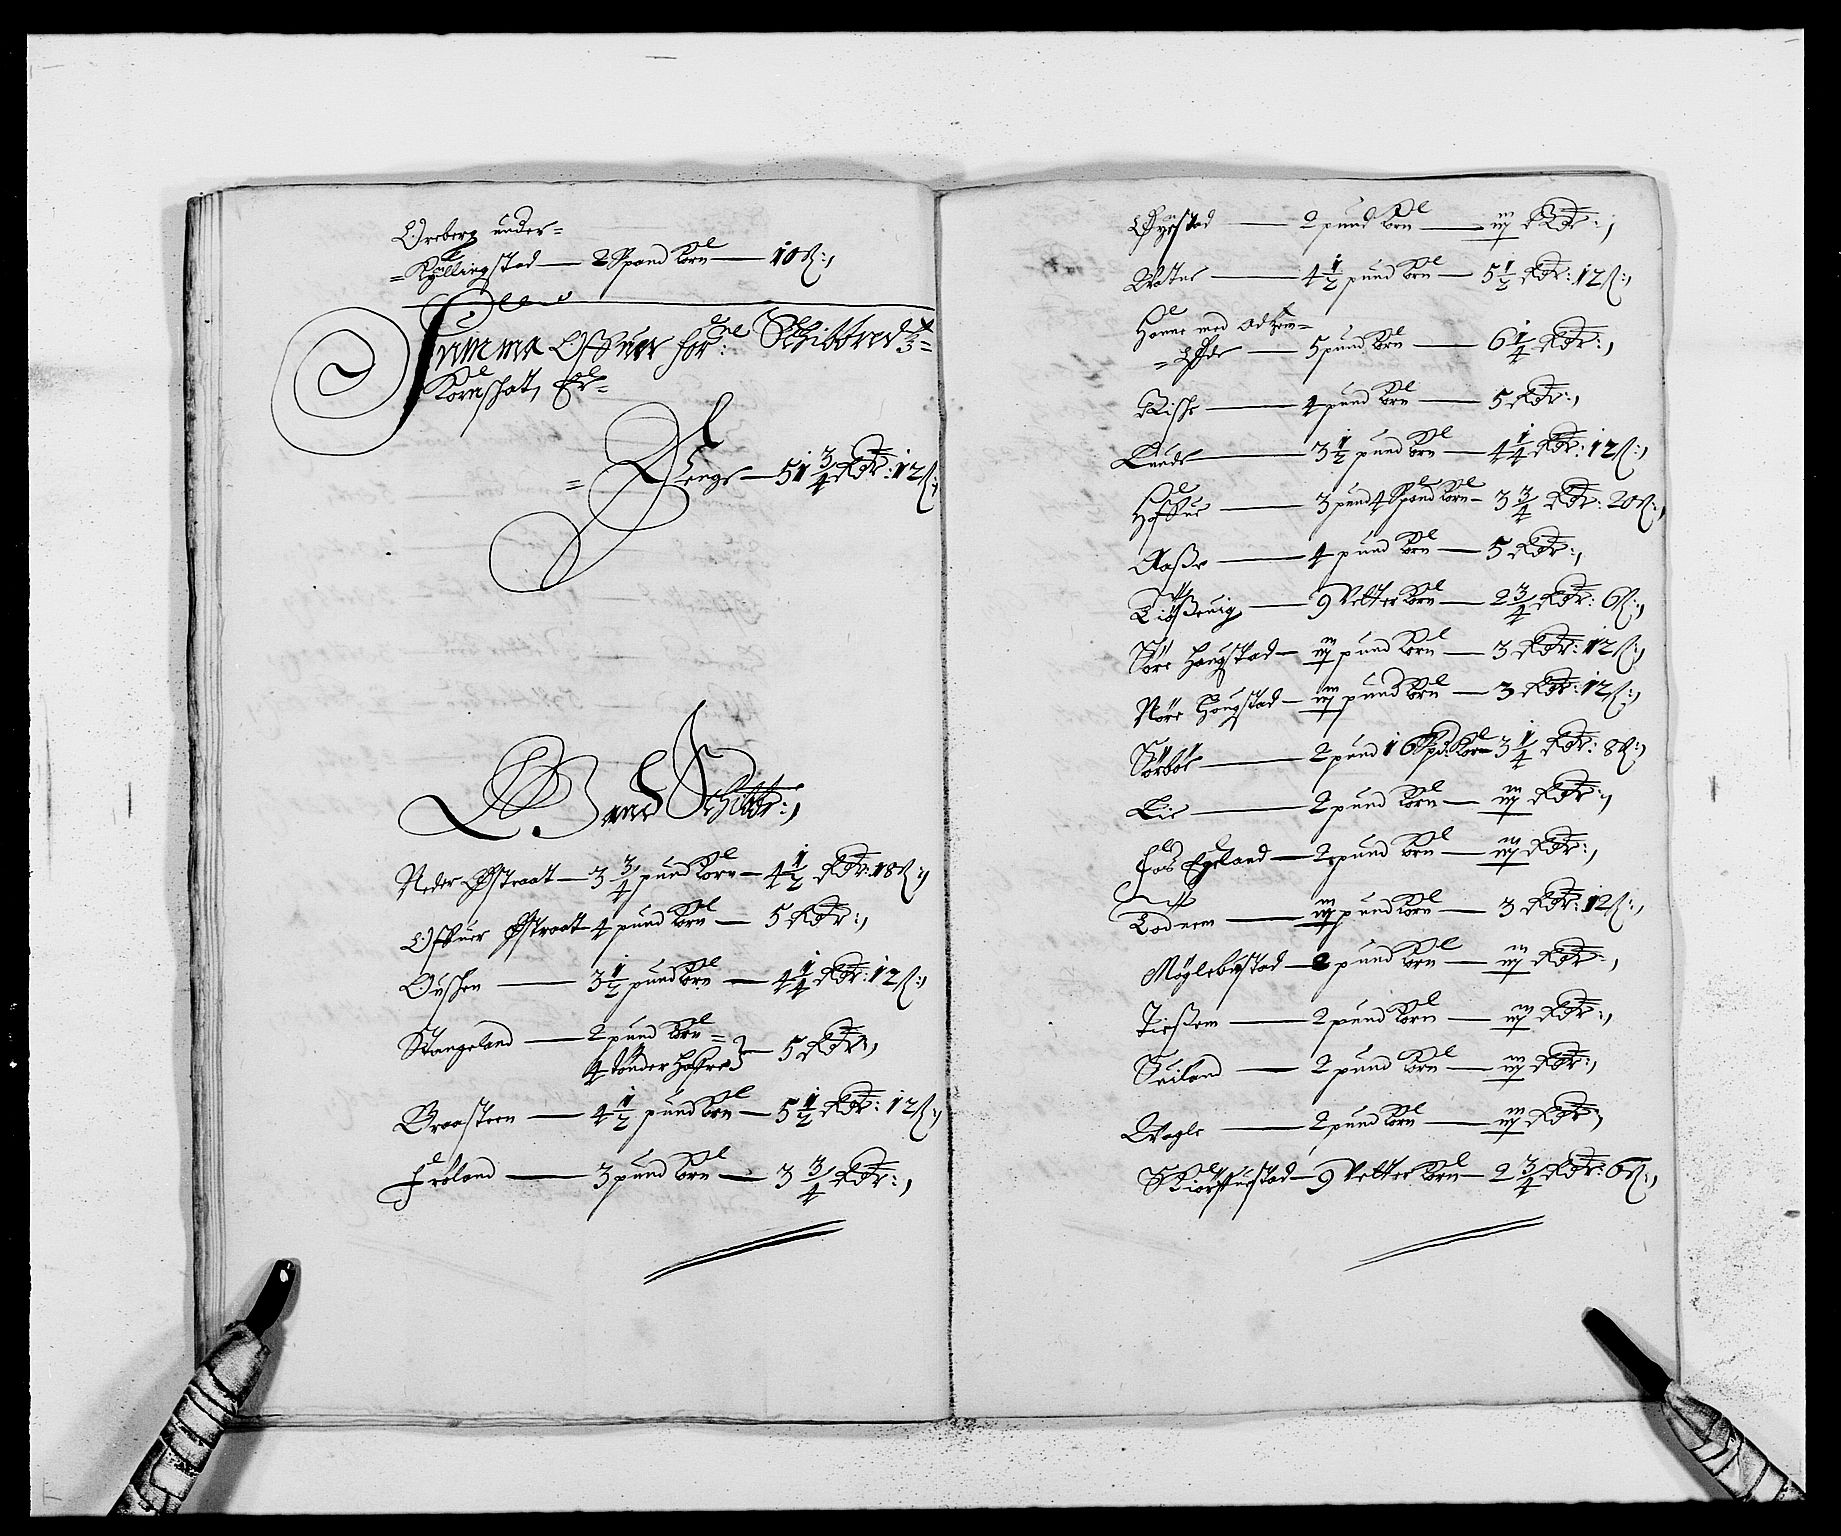 Øreberg under=
=Kyllingstad — 2 Spand Korn — 10 ß:,
Summa Offuer for:ne Schibbred ß=
Kornschat, Er=
= Penge — 51 3/4 Rdr: 12 ß:,
Sand Schibbr:,
Neder Østraat — 3 3/4 pund Korn — 4 1/2 Rdr: 18 ß:,
Offuer Østraat 4 pund Korn — 5 Rdr:,
Oushen — 3 1/2 pund Korn — 4 1/4 Rdr: 12 ß:,
Stangeland — 2 pund Korn =
4 tønder hafre } — 5 Rdr:,
Graasteen — 4 1/2 pund Korn — 5 1/2 Rdr: 12 ß:,
Frøland — 3 pund Korn — 3 3/4 Rdr:,
Øyestad — 2 pund Korn — iij Rdr:,
Watne — 4 1/2 pund Korn — 5 1/2 Rdr: 12 ß:,
Hanne med Odhem=
=Øde — 5 pund Korn — 6 1/4 Rdr:,
Rishe — 4 pund Korn — 5 Rdr:,
Lunde — 3 1/2 pund Korn — 4 1/4 Rdr: 12 ß:,
Hoffue — 3 pund 4 Spand Korn — 3 3/4 Rdr: 20 ß:,
Aasse — 4 pund Korn — 5 Rdr:,
Liösseuig — 9 Vetter Korn — 2 3/4 Rdr: 6 ß:,
Søre Haugstad — iij pund Korn — 3 Rdr: 12 ß:,
Nøre Hougstad — iij pund Korn — 3 Rdr: 12 ß:,
Sørbøe — 2 pund 16 Spd: Korn 3 1/4 Rdr: 8 ß:,
Lie — 2 pund Korn — iij Rdr:,
Foss Egeland — 2 pund Korn — iij Rdr:,
Lødnem — iij pund Korn — 3 Rdr: 12 ß:,
Møglebustad — 2 pund Korn — iij Rdr:,
Tiessem — 2 pund Korn — iij Rdr:,
Seiland — 2 pund Korn — iij Rdr:,
Wagle — 2 pund Korn — iij Rdr:,
Skiørffuestad — 9 Vetter Korn — 2 3/4 Rdr: 6 ß:,